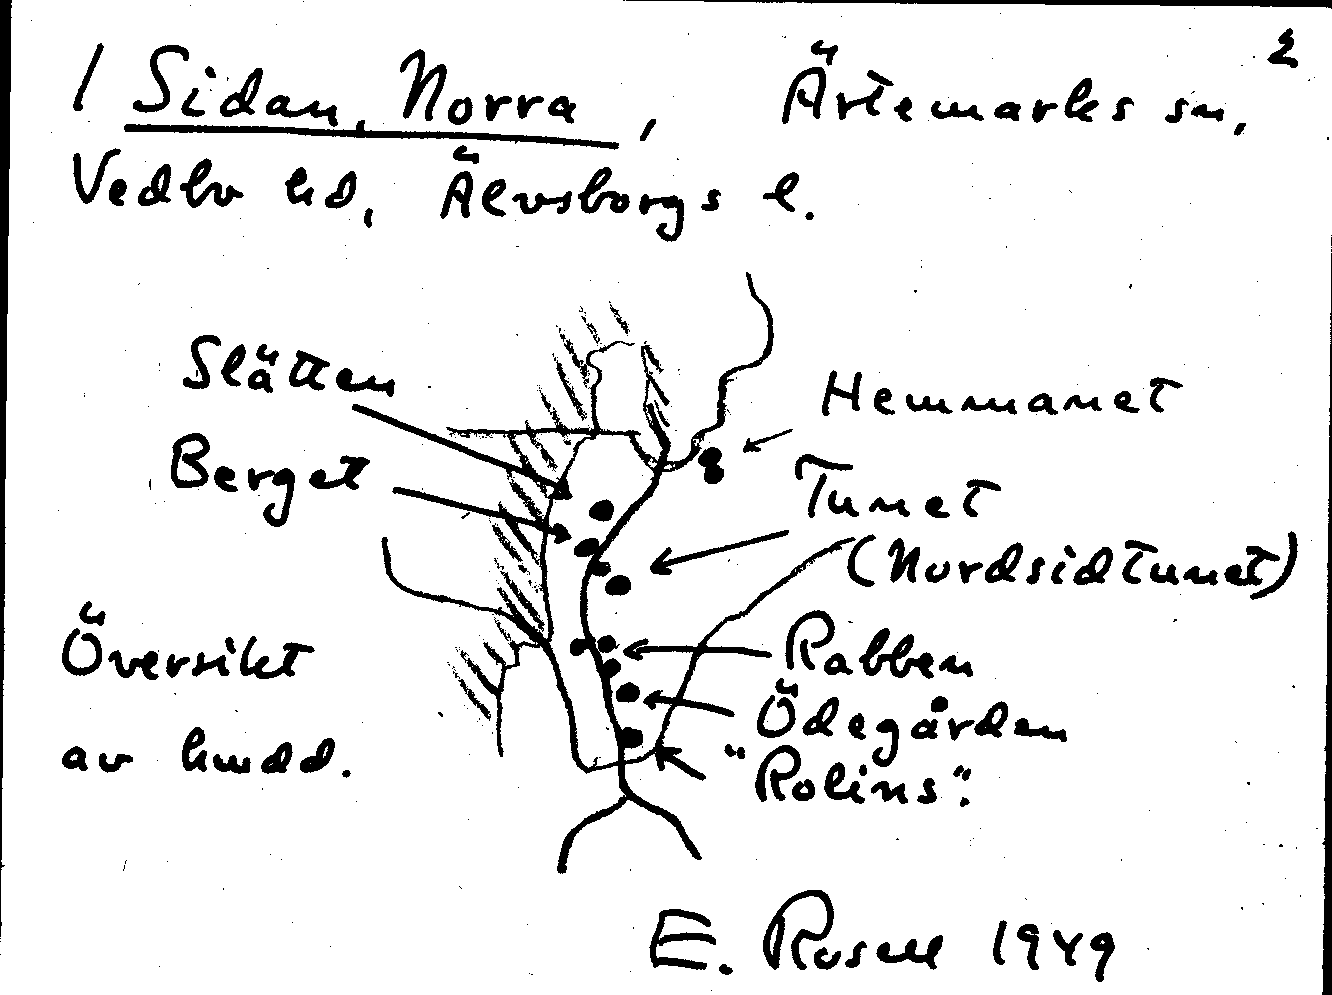 2
1 Sidan, Norra, Ärtemarks sn,
Vedbo hd, Älvsborgs l.
Slätten
Hemmanet
Berget
Tunet
(Nordsidtunet)
Översikt
av hmdd.
Rabben
Ödegården
"Rolins".
E. Rosell 1949